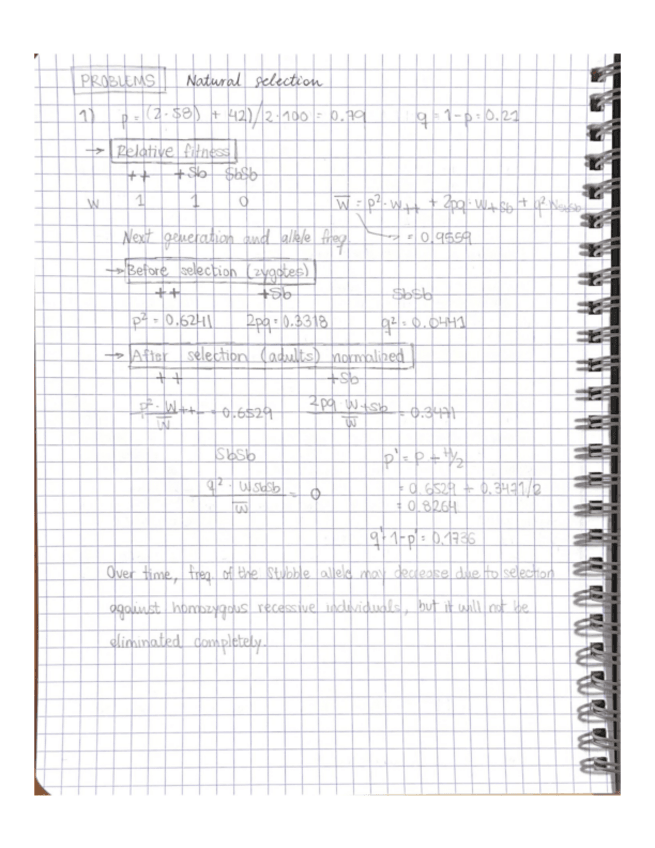 PROBLEMS Natural selection
1) p = (2·58) + 42)/2·100 = 0.79 q = 1-p = 0.21
→ Relative fitness
++ +Sb SbSb
W 1 1 0 W̅ = p²·W++ + 2pq·W+Sb + q² WSbSb
Next generation and allele freq. → = 0.9559
→ Before selection (zygotes)
++ +Sb SbSb
p² = 0.6241 2pq = 0.3318 q² = 0.0441
→ After selection (adults) normalized
++ +Sb
p²·W++ / W̅ = 0.6529 2pq W+Sb / W̅ = 0.3471
SbSb p' = p + H/2
q²·WSbSb / W̅ = 0 = 0.6529 + 0.3471/2
= 0.8264
q' 1-p' = 0.1736
Over time, freq. of the Stubble allele may decrease due to selection
against homozygous recessive individuals, but it will not be
eliminated completely.